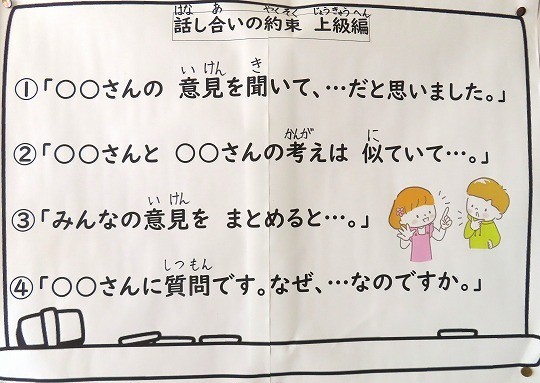 はな あ やくそく じょうきゅうへん
話し合いの約束 上級編
い けん き
①「○○さんの 意見を聞いて、…だと思いました。」
かんが に
②「○○さんと ○○さんの考えは 似ていて…。」
い けん
③「みんなの意見を まとめると…。」
しつ もん
④「○○さんに質問です。なぜ、…なのですか。」